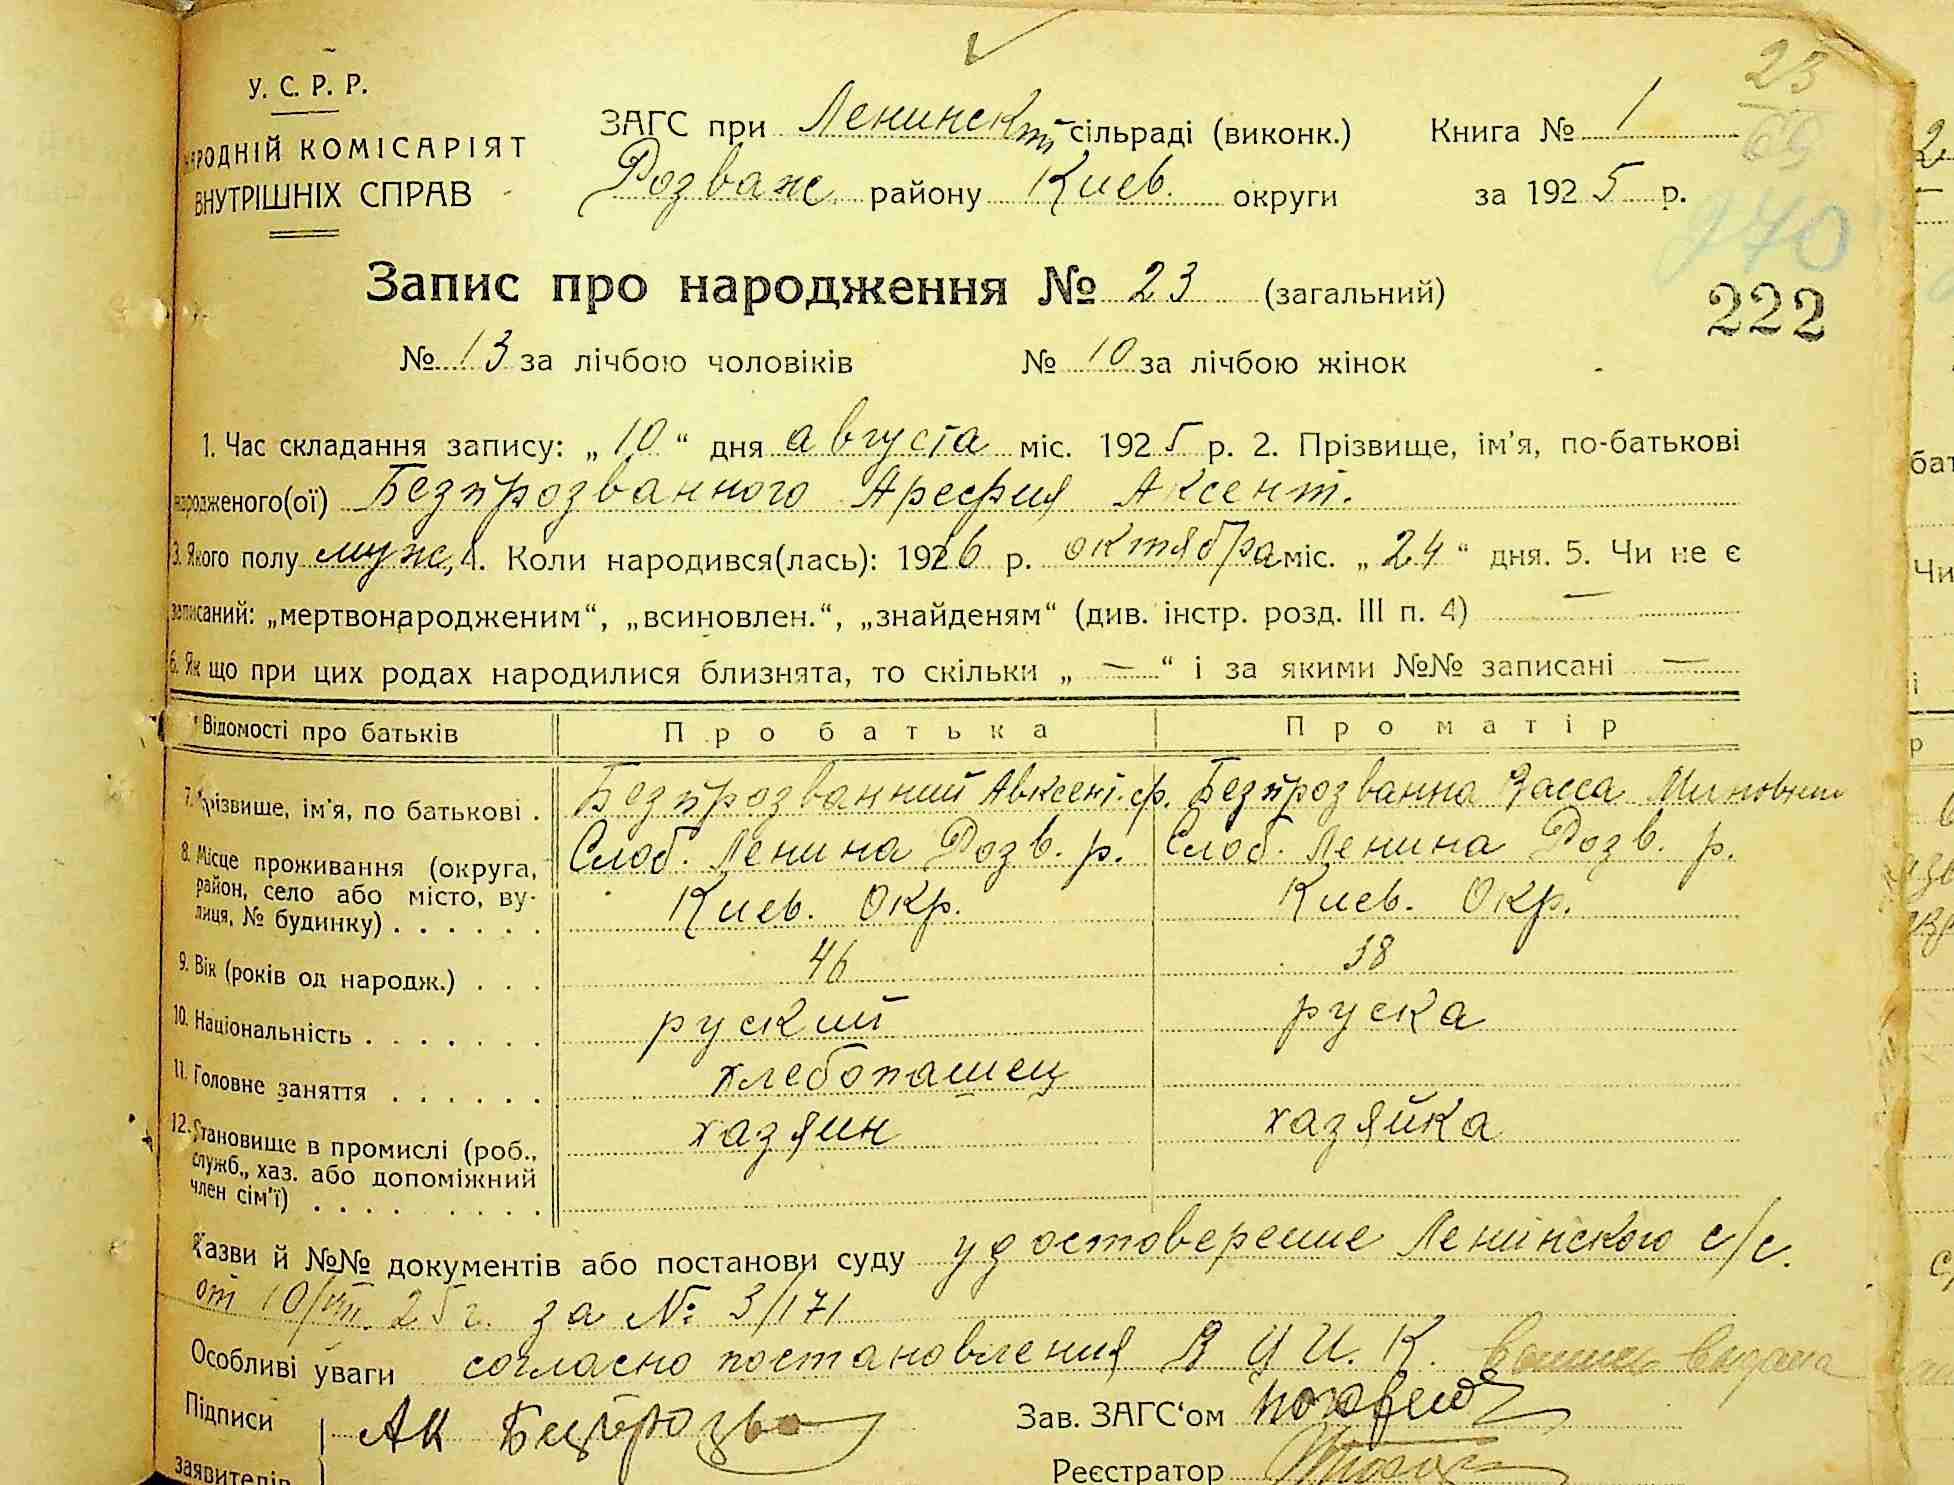 У. С. Р. Р.
НАРОДНІЙ КОМІСАРІЯТ
ВНУТРІШНІХ СПРАВ
23
69
270
222
ЗАГС при Ленинск сільраді (виконк.) Книга № 1
Розваж. району Киев. округи за 1925 р.
Запис про народження № 23 (загальний)
№ 13 за лічбою чоловіків № 10 за лічбою жінок
1. Час складання запису: „10“ дня августа міс. 1925 р. 2. Прізвище, ім'я, по-батькові
народженого(ої) Безпрозванного Арефия Аксент.
3. Якого полу муж. 4. Коли народився(лась): 1926 р. октября міс. „24“ дня. 5. Чи не є
записаний: „мертвонародженим“, „всиновлен.“, „знайденям“ (див. інстр. розд. III п. 4) —
6. Як що при цих родах народилися близнята, то скільки „—“ і за якими №№ записані —
Відомості про батьків Про батька Про матір
7. Прізвище, ім'я, по батькові . Безпрозванний Авксент. ф. Безпрозванна Васса
8. Місце проживання (округа, Слоб. Ленина Розв. р. Слоб. Ленина Розв. р.
район, село або місто, ву- Киев. Окр. Киев. Окр.
лиця, № будинку) . . . . . .
9. Вік (років од народж.) . . . 46 38
10. Національність . . . . . . . руский руска
11. Головне заняття . . . . . . хлебопашец
12. Становище в промислі (роб., хазяин хазяйка
служб., хаз. або допоміжний
член сім'ї) . . . . . . . . .
Назви й №№ документів або постанови суду удостоверение Ленінского с/с.
от 10/VIII. 25 г. за № 3/171
Особливі уваги согласно постановления В Ц И. К. выдана
Підписи АК Безпрозва Зав. ЗАГС'ом
заявителів Реєстратор